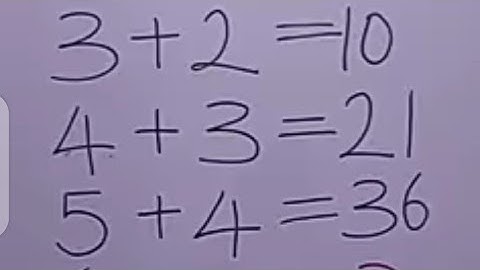 3+2=10
4+3=21
5+4=36